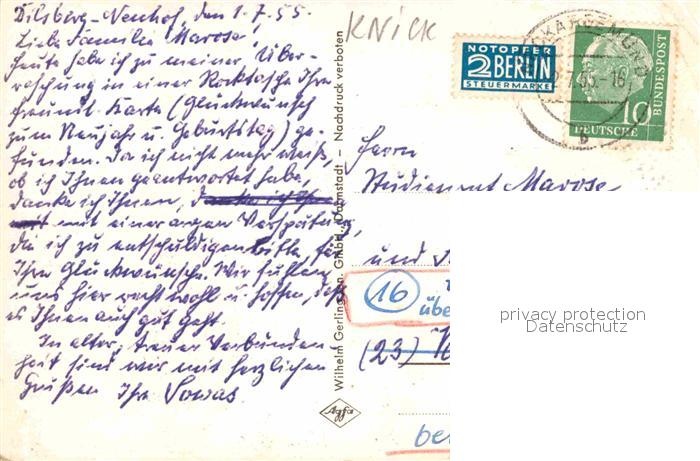 Dilsberg-Neuhof, den 1.7.55.
Liebe Familie Marose,
heute habe ich zu meiner Über-
raschung in einer Rocktasche Ihre
freundl. Karte (Glückwunsch
zum Neujahr u. Geburtstag) ge-
funden. Da ich nicht mehr weiß,
ob ich Ihnen geantwortet habe,
danke ich Ihnen,
mit einer argen Verspätung,
die ich zu entschuldigen bitte, für
Ihre Glückwünsche. Wir fühlen
uns hier recht wohl u. hoffen, daß
es Ihnen auch gut geht.
In alter, treuer Verbunden
heit sind wir mit herzlichen
Grüßen Ihr
KNICK
Wilhelm Gerling Darmstadt — Nachdruck verboten
Agfa
NOTOPFER
2 BERLIN
STEUERMARKE
7.55.-16
b
10
DEUTSCHE
BUNDESPOST
Herrn
Marose
und
16
übe
(23)
be
privacy protection
Datenschutz